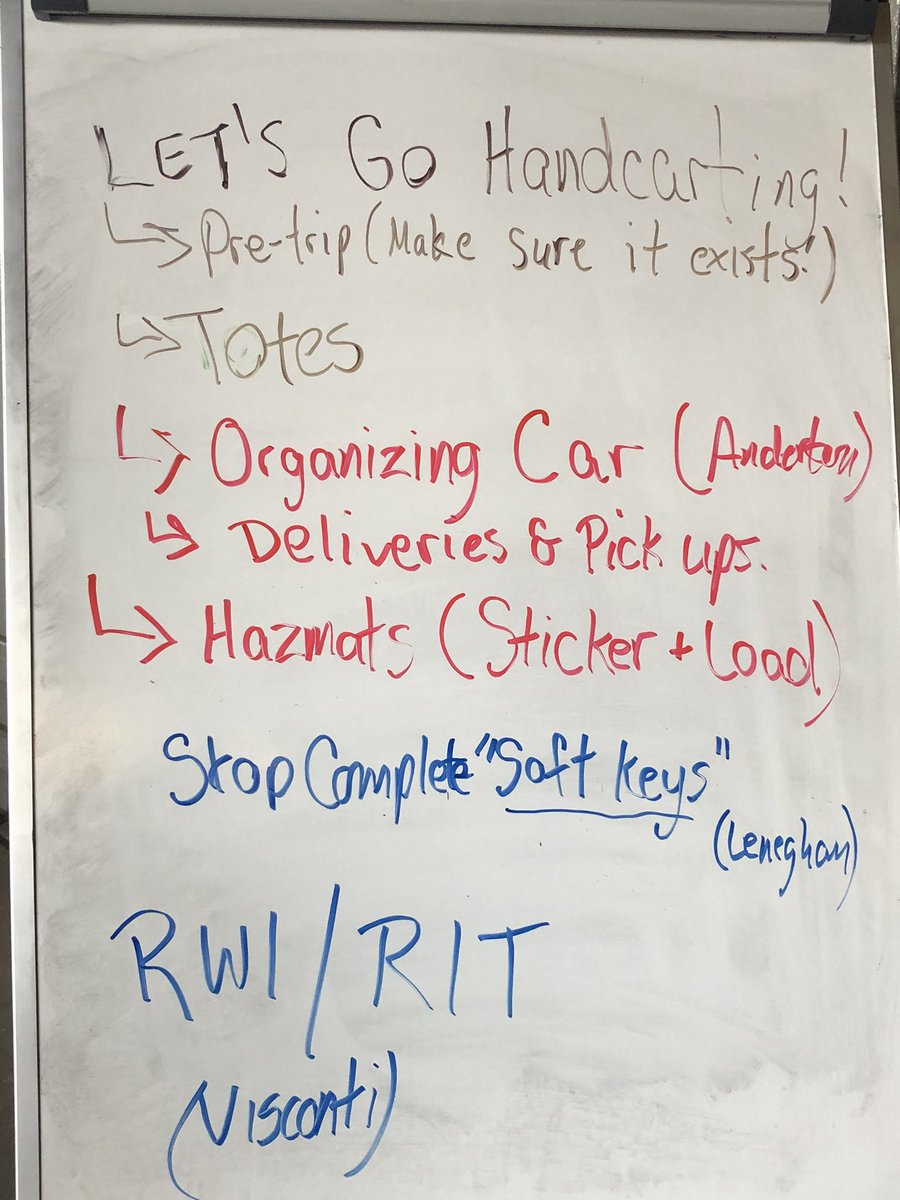 LET'S Go Handcarting!
Pre-trip (Make sure it exists!)
Totes
Organizing Car (Anderton)
Deliveries & Pick ups.
Hazmats (Sticker + Load)
Stop Complete "Soft keys"
(Leneghan)
RWI/RIT
(Visconti)